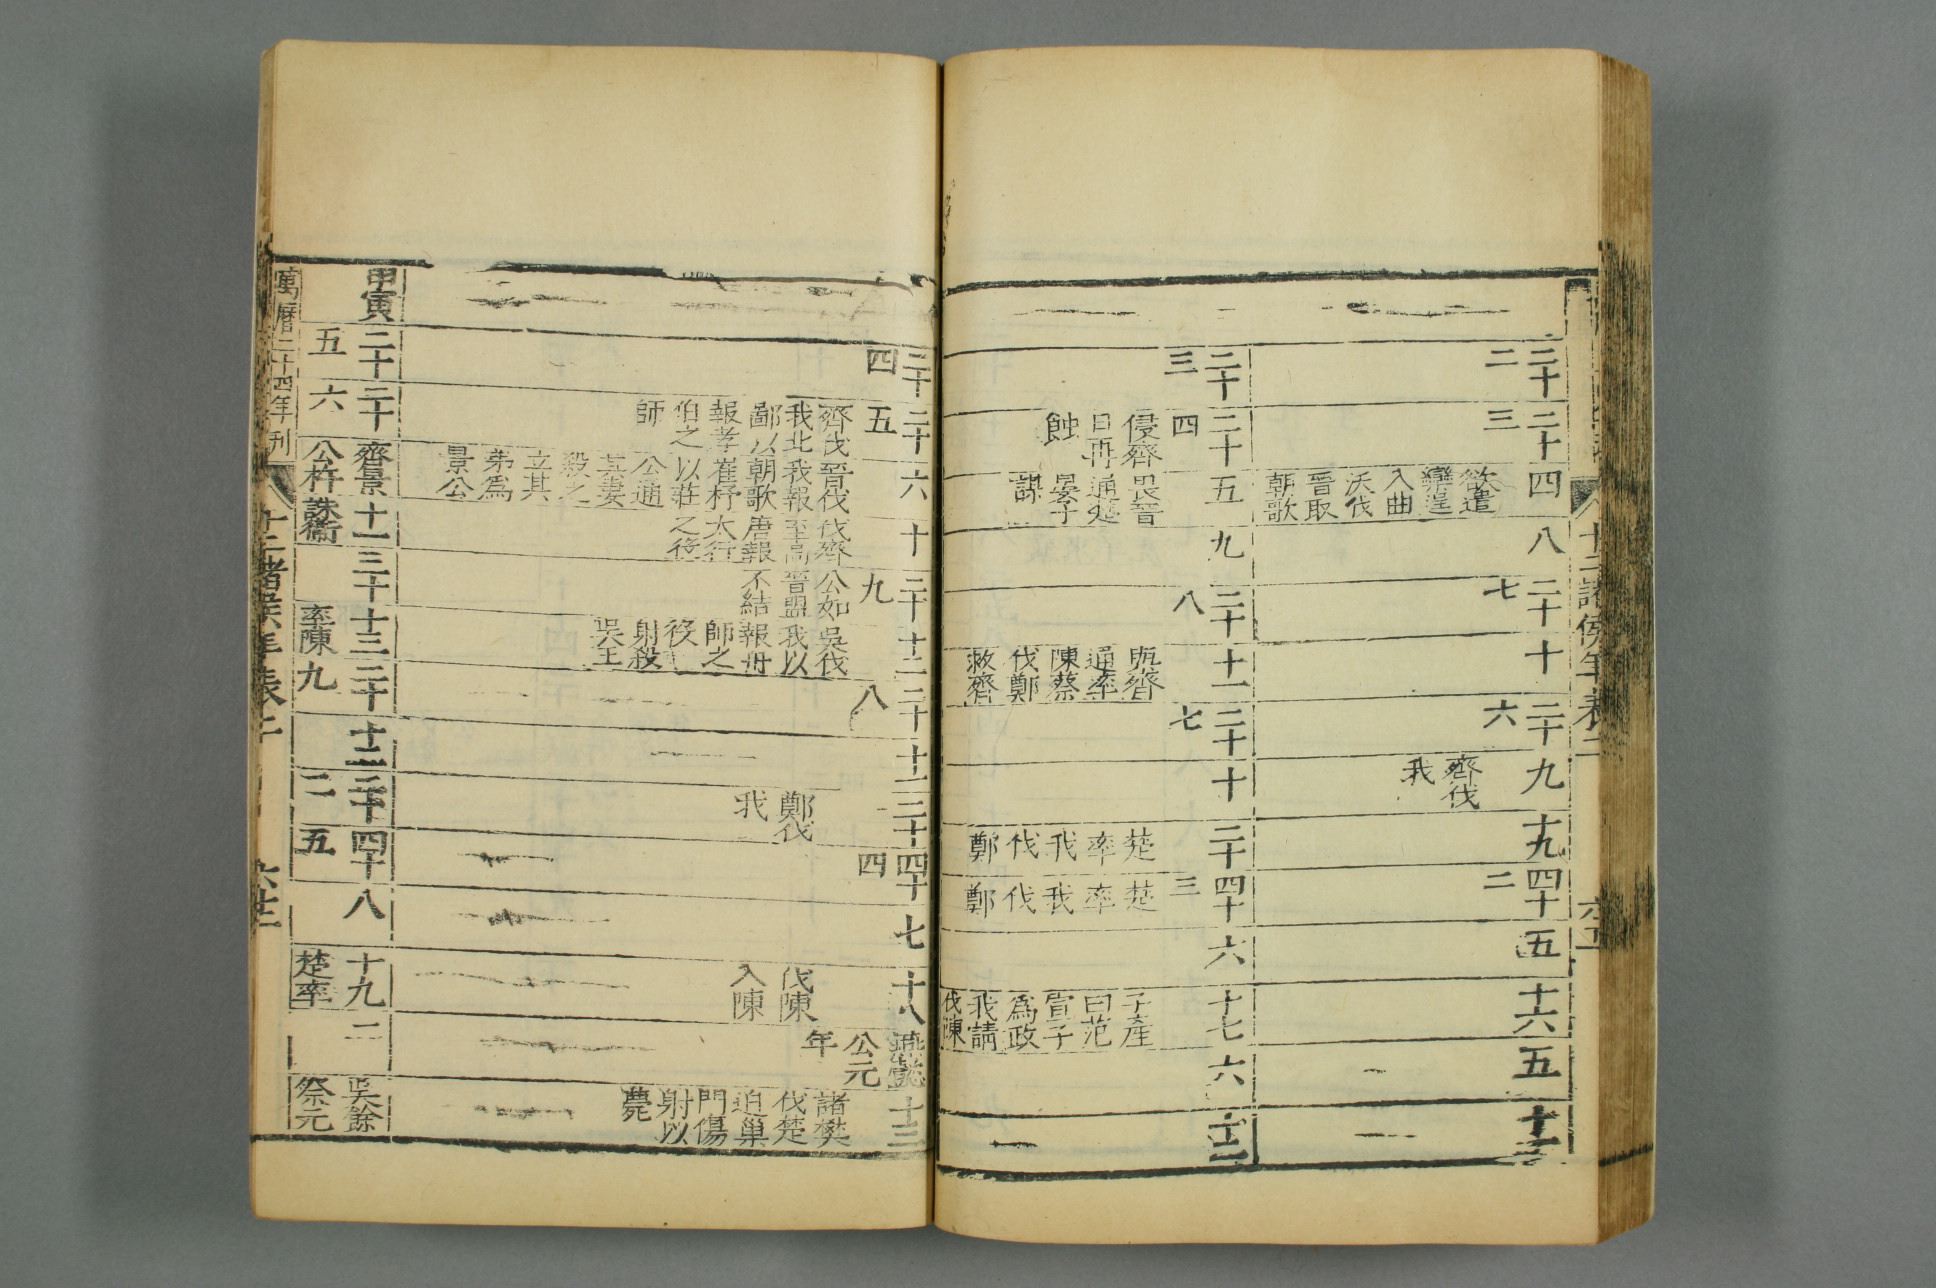 十二諸侯年表二
二十
二
二十
三
四
欲遣
欒逞
入曲
沃伐
晉取
朝歌
八
二十
七
十
二十
六
九
齊伐
我
十九
四十
二
五
十六
五
二十
三
二十
四
侵齊
日再
蝕
五
畏晉
通楚
晏子
謀
九
二十
八
十一
通率
陳蔡
伐鄭
救齊
二十
七
十
楚
率
我
伐
鄭
二十
四十
三
楚
率
我
伐
鄭
六
十七
子產
曰范
宣子
為政
我請
伐陳
六
二十
四
二十
五
齊伐
我北
鄙以
報孝
伯之
師
六
晉伐
我報
朝歌
崔杼
以莊
公通
其妻
殺之
立其
弟為
景公
十
伐齊
至高
唐報
太行
之役
二十
九
公如
晉盟
不結
十二
吳伐
我以
報舟
師之
役
射殺
吳王
二十
八
十一
三十
鄭伐
我
四十
四
七
十八
伐陳
入陳
燕懿
公元
年
十三
諸樊
伐楚
迫巢
門傷
射以
薨
甲寅
二十
五
二十
六
齊景
公杵
十一
誅衞
三十
十三
率陳
二十
九
十二
四十
五
八
十九
楚率
二
吳餘
祭元
萬曆二十四年刊
十二諸侯年表二